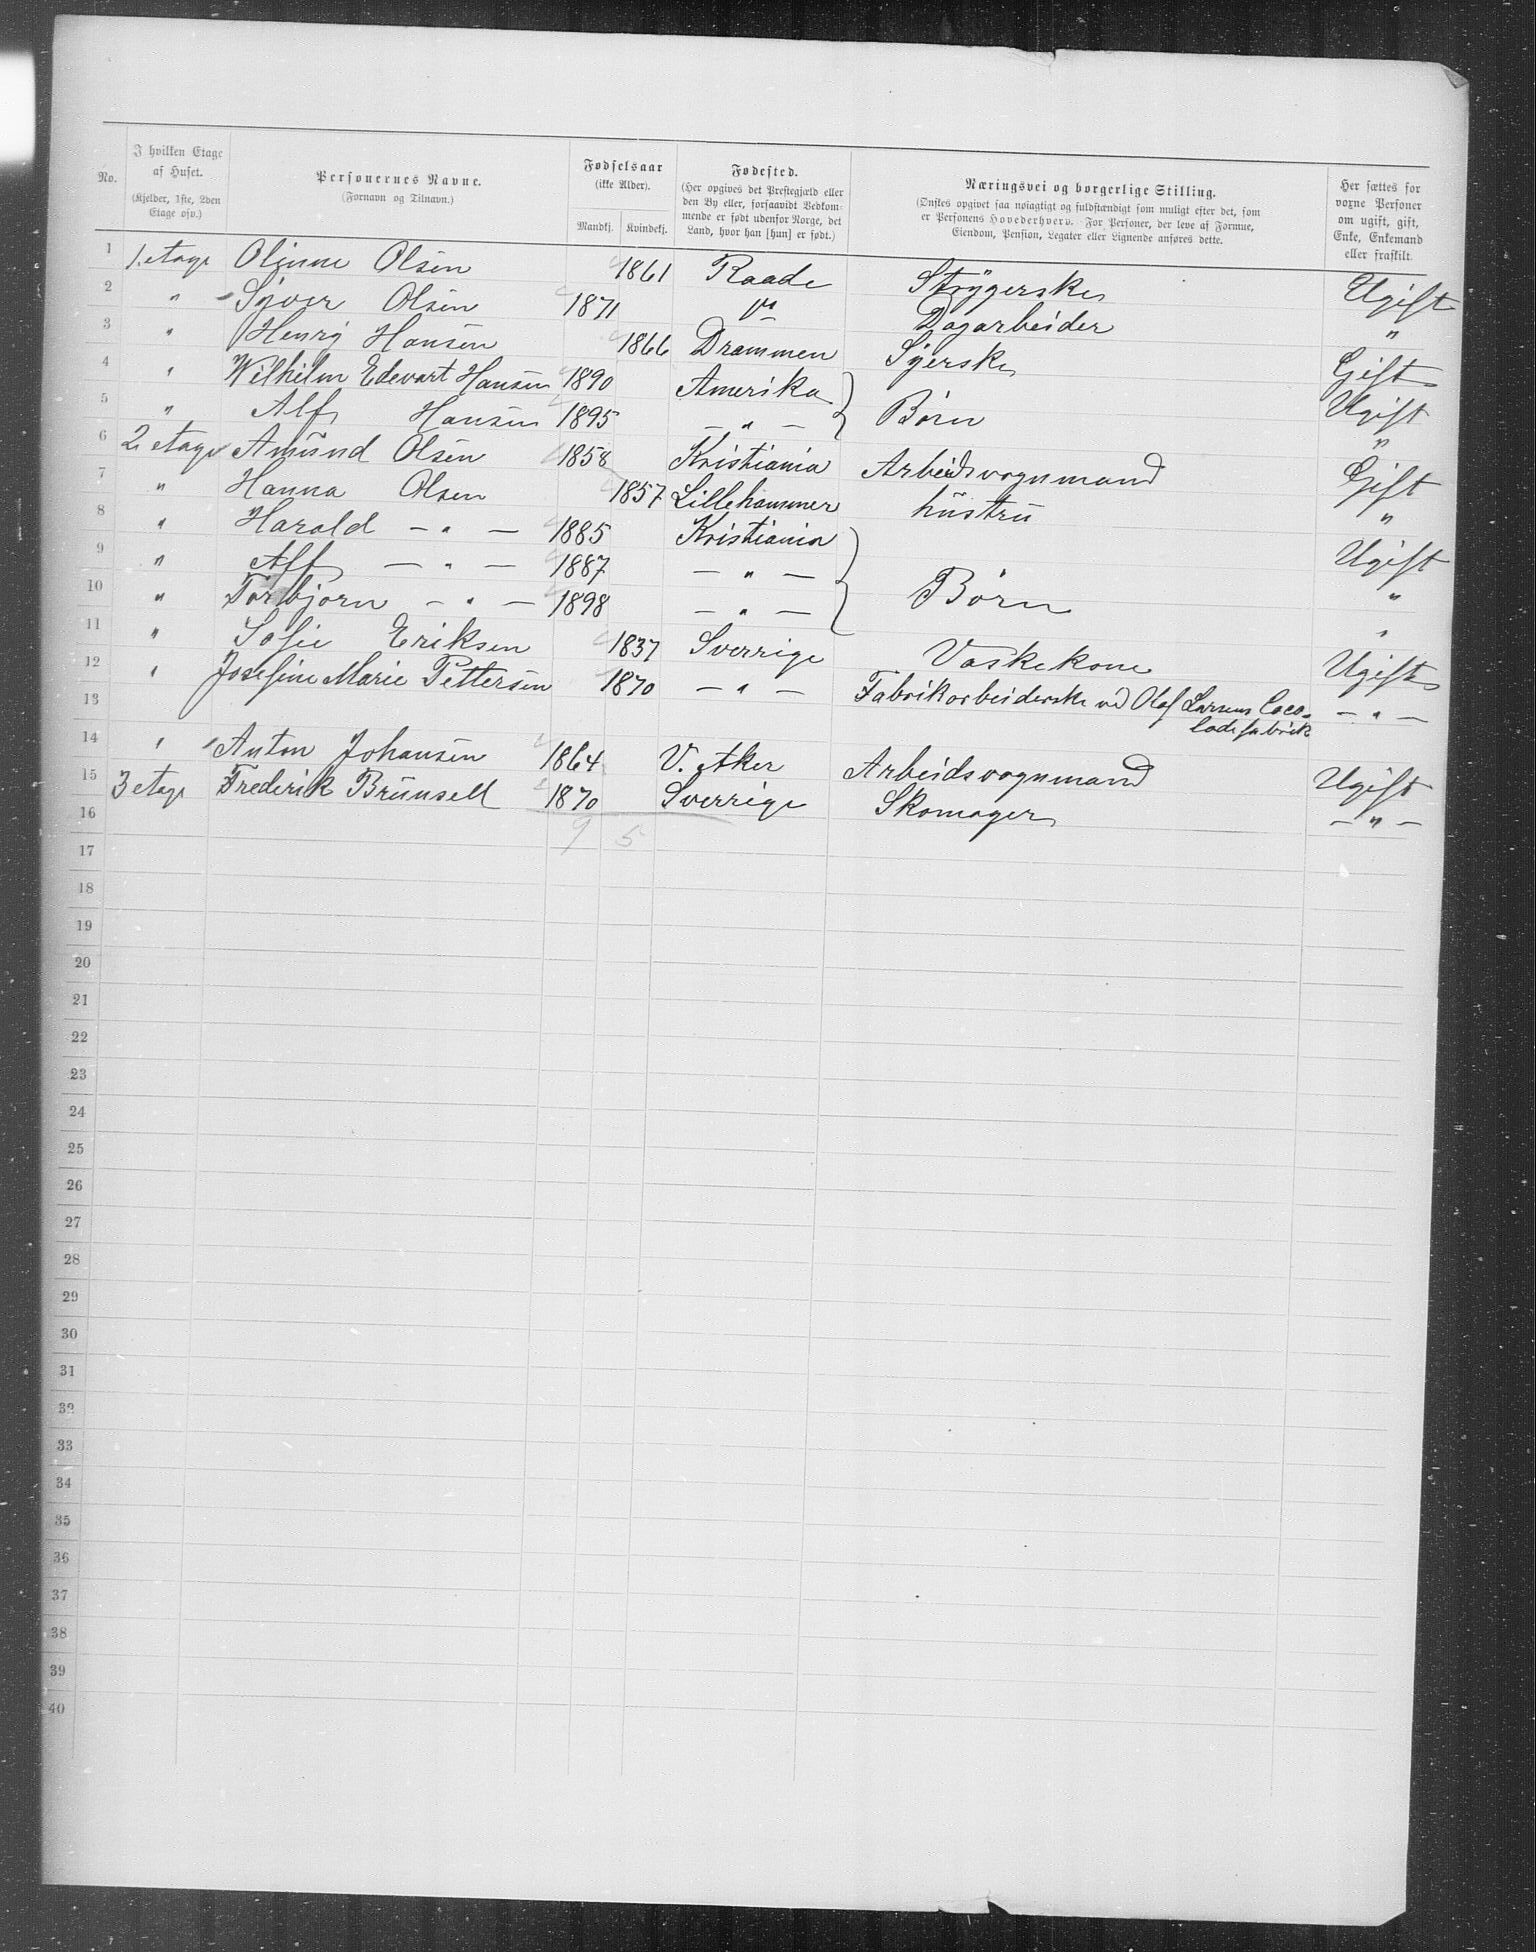 No.
I hvilken Etage af Huset.
(Kjelder, 1ste, 2den Etage osv.)
Personernes Navne.
(Fornavn og Tilnavn.)
Fødselsaar
(ikke Alder).
Mandkj. Kvindekj.
Fødested.
(Her opgives det Prestegjæld eller
den By eller, forsaavidt Vedkom-
mende er født udenfor Norge, det
Land, hvor han [hun] er født.)
Næringsvei og borgerlige Stilling.
(Ønskes opgivet saa nøiagtigt og fuldstændigt som muligt efter det, som
er Personens Hovederhverv. For Personer, der leve af Formue,
Eiendom, Pension, Legater eller Lignende anføres dette.
Her sættes for
voxne Personer
om ugift, gift,
Enke, Enkemand
eller fraskilt.
1 1. etage Olinne Olsen 1861 Raade Strygerske Ugift
2 " Syver Olsen 1871 Do Dagarbeider "
3 " Henry Hansen 1866 Drammen Syerske Gift
4 " Wilhilm Edevart Hansen 1890 Amerika } Børn Ugift
5 " Alf Hansen 1895 — " — "
6 2. etage Amund Olsen 1858 Kristiania Arbeidsvognmand Gift
7 " Hanna Olsen 1857 Lillehammer hustru "
8 " Harald — " — 1885 Kristiania Ugift
9 " Alf — " — 1887 — " — } Børn "
10 " Torbjorn — " — 1898 — " — "
11 " Sofie Eriksen 1837 Sverrige Vaskekone Ugift
12 " Josefine Marie Pettersen 1870 — " — Fabrikarbeiderske ved Olaf Larsens Coco- — " —
13 ladefabrik
14 " Anton Johansen 1864 V. Aker Arbeidsvognmand Ugift
15 3 etage Frederik Brunsell 1870 Sverrige Skomager — " —
16 9 5
17
18
19
20
21
22
23
24
25
26
27
28
29
30
31
32
33
34
35
36
37
38
39
40